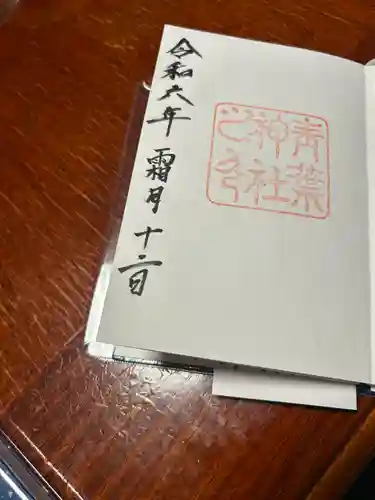 令和六年 霜月 十二日
青葉
神社
之印